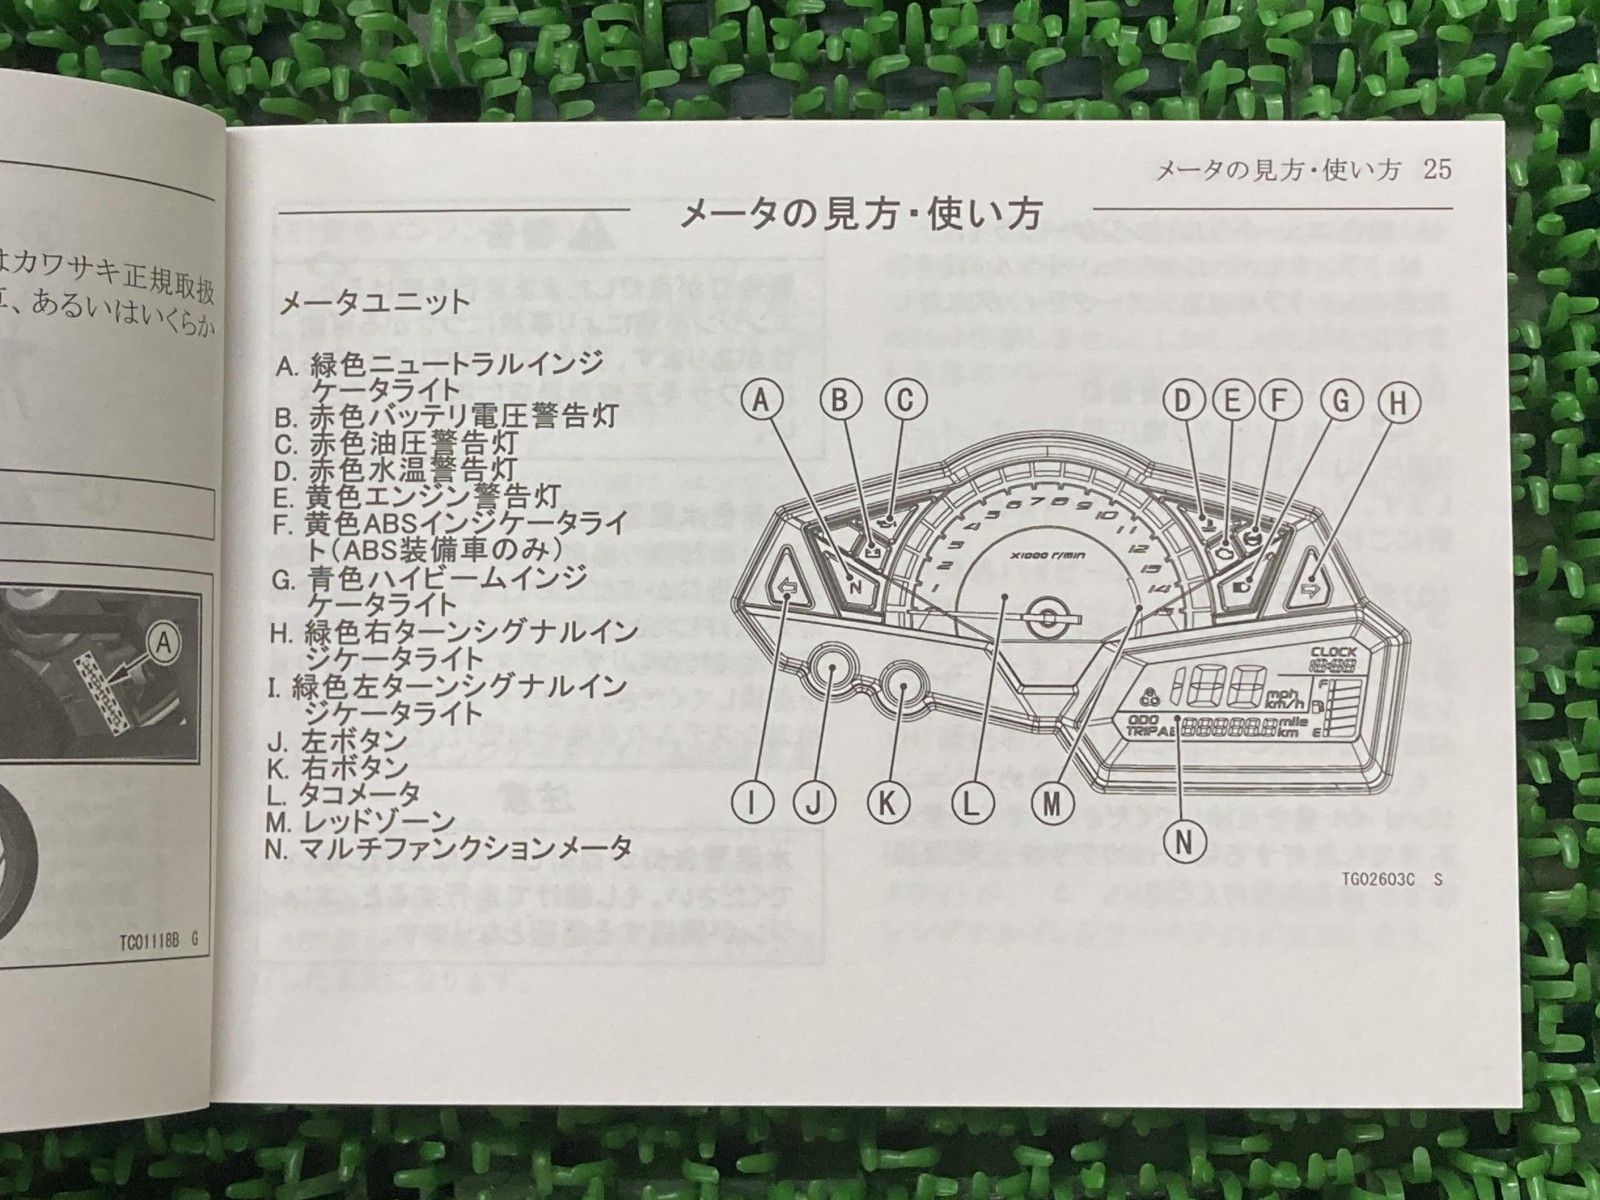 はカワサキ正規取扱
、あるいはいくらか
A
TC01118B G
メータの見方・使い方 25
メータの見方・使い方
メータユニット
A. 緑色ニュートラルインジ
ケータライト
B. 赤色バッテリ電圧警告灯
C. 赤色油圧警告灯
D. 赤色水温警告灯
E. 黄色エンジン警告灯
F. 黄色ABSインジケータライ
ト(ABS装備車のみ)
G. 青色ハイビームインジ
ケータライト
H. 緑色右ターンシグナルイン
ジケータライト
I. 緑色左ターンシグナルイン
ジケータライト
J. 左ボタン
K. 右ボタン
L. タコメータ
M. レッドゾーン
N. マルチファンクションメータ
A B C D E F G H
1 2 3 4 5 6 7 8 9 10 11 12 13 14 15
X1000 r/min
N
CLOCK
18:88
188 mph
km/h
F
E
ODO
TRIP AB 888888.8 mile
km
I J K L M
N
TG02603C S